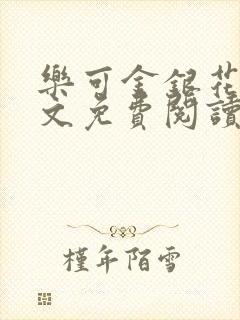 樂可金銀花
文免費閱讀
槿年陌雪